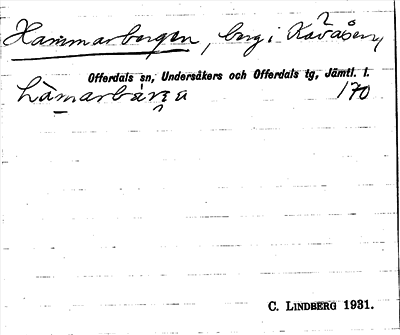 Hammarbergen, berg i Rävåsen,
Offerdals sn, Undersåkers och Offerdals tg, Jämtl. l.
170
C. LINDBERG 1931.